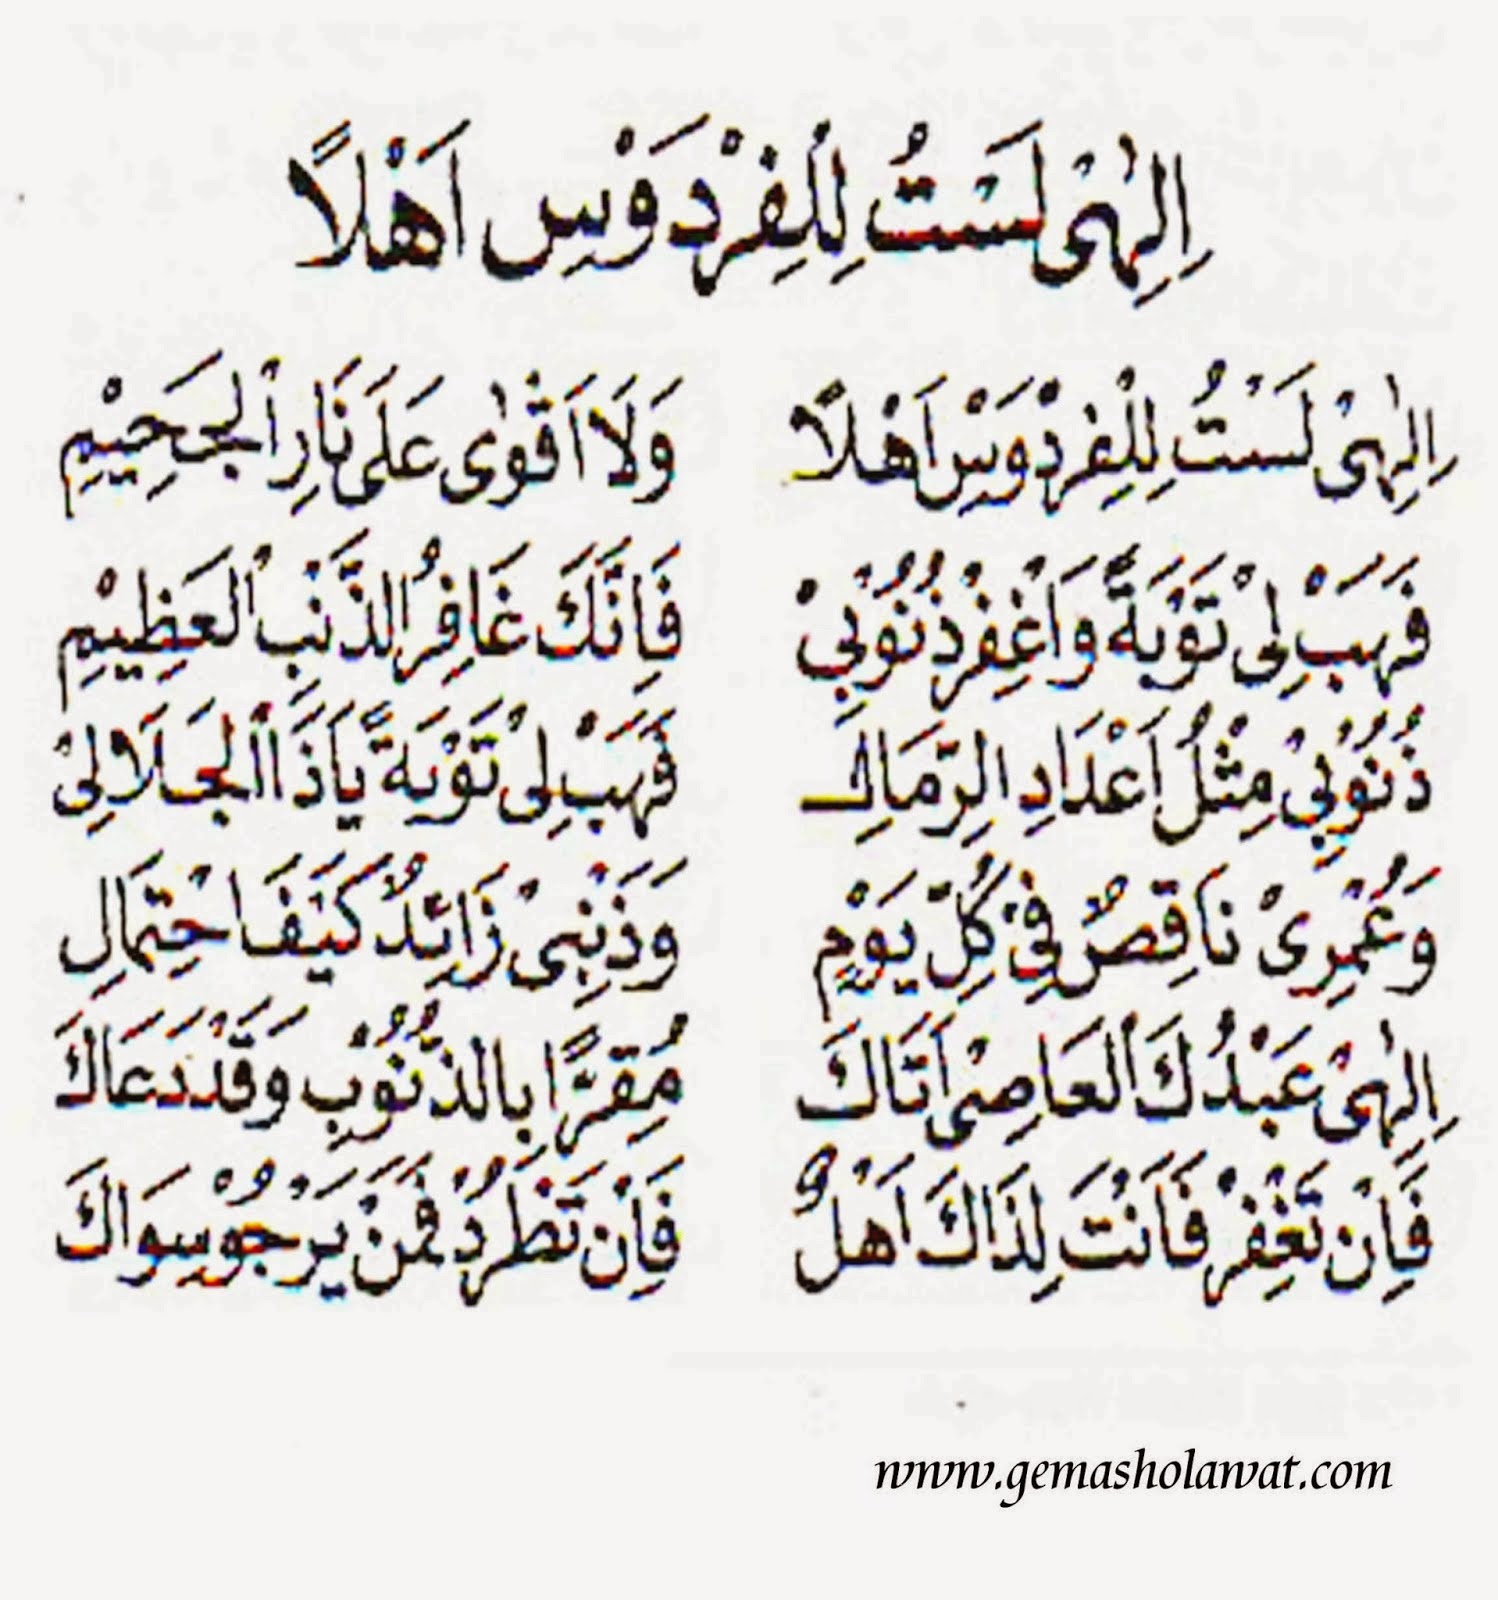 اِلٰهِىْ لَسْتُ لِلْفِرْدَوْسِ اَهْلاً
اِلٰهِىْ لَسْتُ لِلْفِرْدَوْسِ اَهْلاً وَلَا اَقْوٰى عَلَى نَارِ الْجَحِيْمِ
فَهَبْ لِىْ تَوْبَةً وَاغْفِرْ ذُنُوْبِيْ فَاِنَّكَ غَافِرُ الذَّنْبِ الْعَظِيْمِ
ذُنُوْبِيْ مِثْلُ اَعْدَادِ الرِّمَالِ فَهَبْ لِىْ تَوْبَةً يَاذَا الْجَلَالِىْ
وَعُمْرِىْ نَاقِصٌ فِىْ كُلِّ يَوْمٍ وَذَنْبِىْ زَائِدٌ كَيْفَ احْتِمَالِ
اِلٰهِىْ عَبْدُكَ الْعَاصِىْ اَتَاكَ مُقِرًّا بِالذُّنُوْبِ وَقَدْ دَعَاكَ
فَاِنْ تَغْفِرْ فَاَنْتَ لِذَاكَ اَهْلٌ فَاِنْ تَطْرُدْ فَمَنْ يَرْجُوْ سِوَاكَ
www.gemasholawat.com